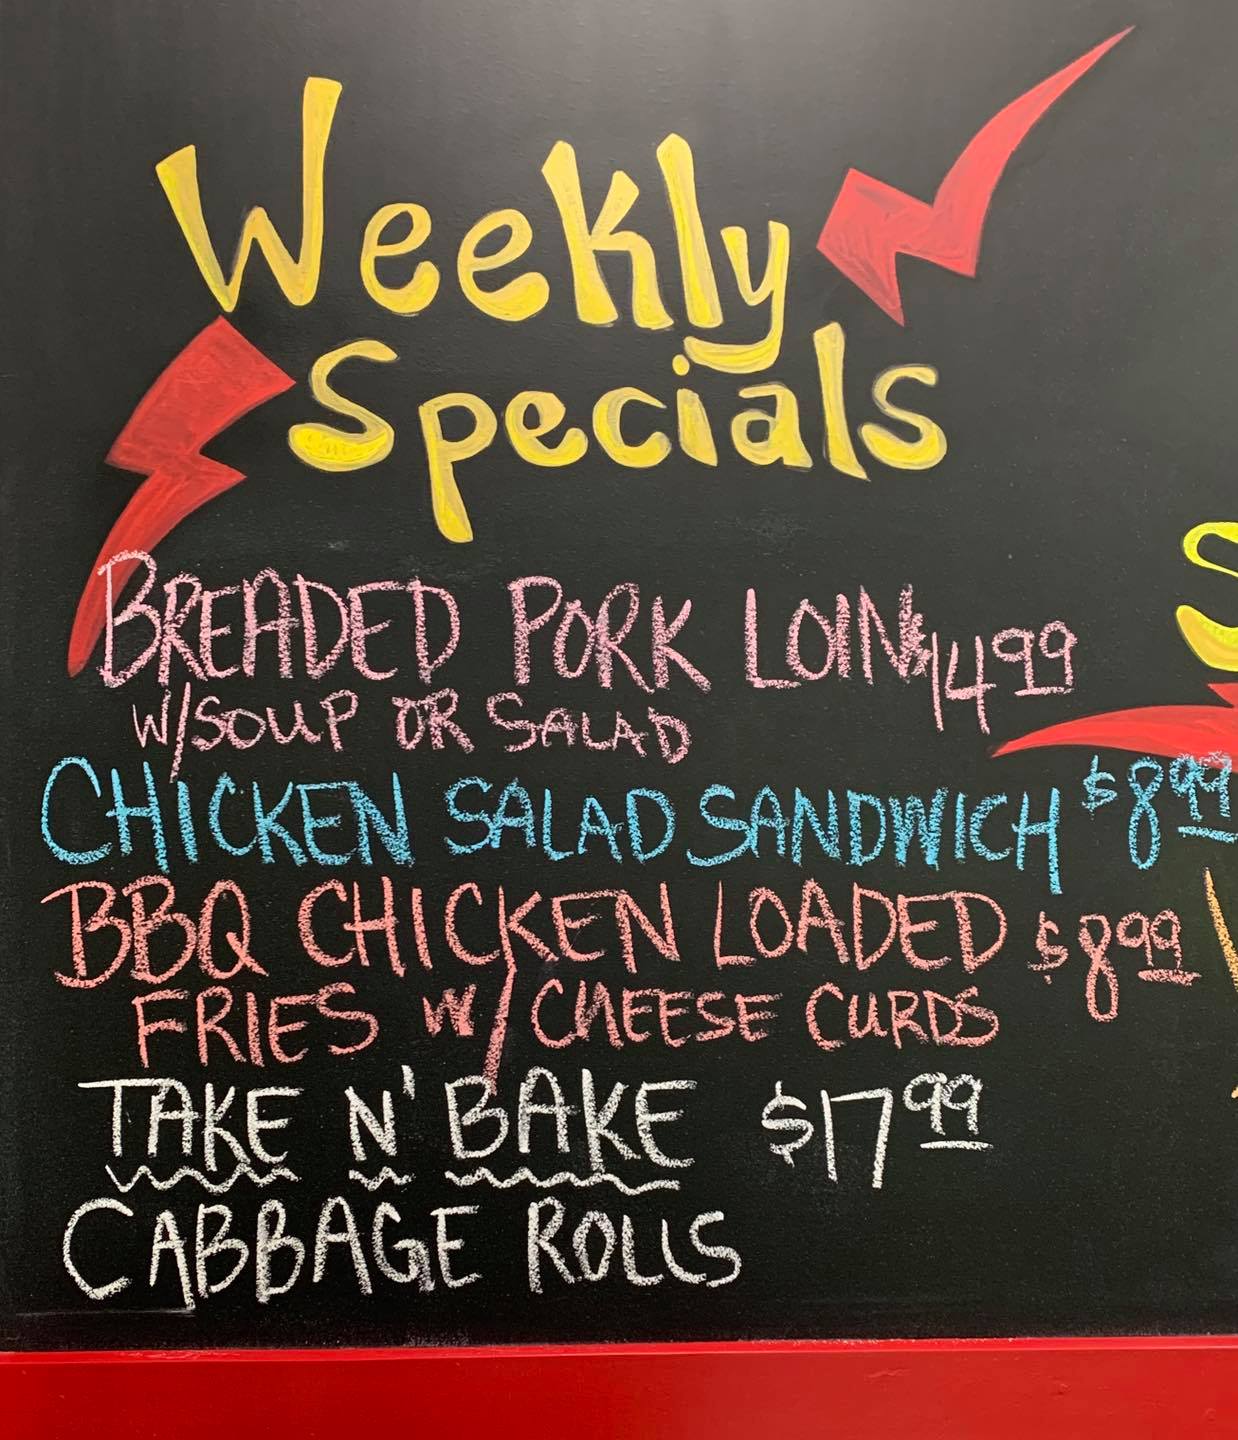 Weekly
Specials
BREADED PORK LOIN $14.99
W/SOUP OR SALAD
CHICKEN SALAD SANDWICH $8.99
BBQ CHICKEN LOADED $8.99
FRIES W/ CHEESE CURDS
TAKE N' BAKE $17.99
CABBAGE ROLLS